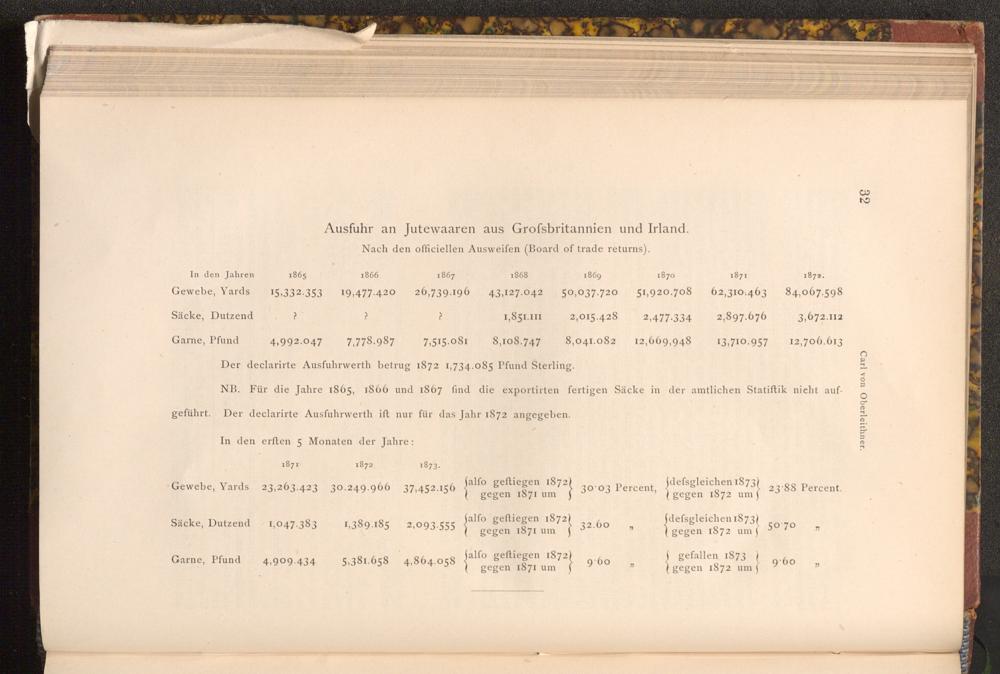 32
Carl von Oberleithner.
Ausfuhr an Jutewaaren aus Grofsbritannien und Irland.
Nach den officiellen Ausweifen (Board of trade returns).
In den Jahren 1865 1866 1867 1868 1869 1870 1871 1872.
Gewebe, Yards 15,332.353 19,477.420 26,739.196 43,127.042 50,037.720 51,920.708 62,310.463 84,067.598
Säcke, Dutzend ? ? ? 1,851.111 2,015.428 2,477.334 2,897.676 3,672.112
Garne, Pfund 4,992.047 7,778.987 7,515.081 8,108.747 8,041.082 12,669,948 13,710.957 12,706.613
Der declarirte Ausfuhrwerth betrug 1872 1,734.085 Pfund Sterling.
NB. Für die Jahre 1865, 1866 und 1867 find die exportirten fertigen Säcke in der amtlichen Statiftik nicht auf-
geführt. Der declarirte Ausfuhrwerth ift nur für das Jahr 1872 angegeben.
In den erften 5 Monaten der Jahre:
1871 1872 1873.
Gewebe, Yards 23,263.423 30.249.966 37,452.156 {alfo geftiegen 1872 gegen 1871 um} 30·03 Percent, {defsgleichen 1873 gegen 1872 um} 23·88 Percent.
Säcke, Dutzend 1,047.383 1,389.185 2,093.555 {alfo geftiegen 1872 gegen 1871 um} 32.60 „ {defsgleichen 1873 gegen 1872 um} 50·70 „
Garne, Pfund 4,909.434 5,381.658 4,864.058 {alfo geftiegen 1872 gegen 1871 um} 9·60 „ {gefallen 1873 gegen 1872 um} 9·60 „